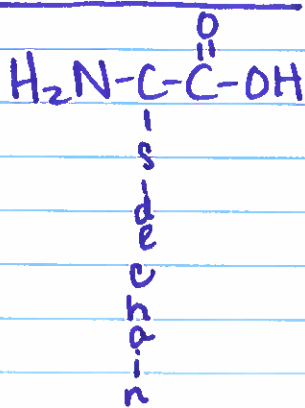 O
H₂N-C-C-OH
s
i
d
e
c
h
a
i
n